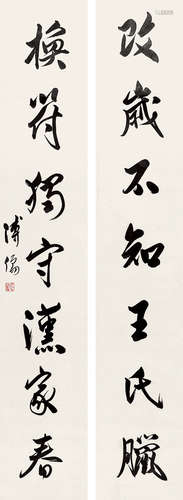 改歲不知王氏臘
換符獨守漢家春
溥儒